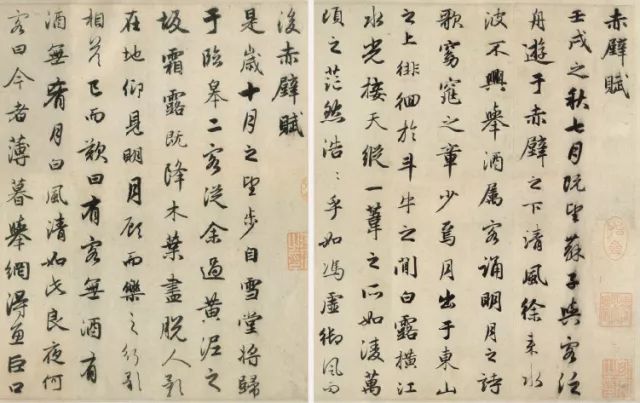 赤壁賦
壬戌之秋七月既望蘇子與客泛
舟遊于赤壁之下清風徐來水
波不興舉酒屬客誦明月之詩
歌窈窕之章少焉月出于東山
之上徘徊於斗牛之間白露橫江
水光接天縱一葦之所如淩萬
頃之茫然浩〻乎如馮虛御風而
後赤壁賦
是歲十月之望步自雪堂將歸
于臨皋二客從余過黃泥之
坂霜露既降木葉盡脫人影
在地仰見明月顧而樂之行歌
相答已而歎曰有客無酒有
酒無肴月白風清如此良夜何
客曰今者薄暮舉網得魚巨口